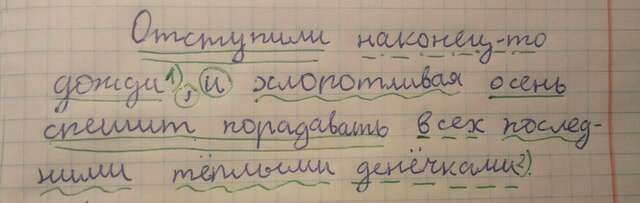 Отступили наконец-то
дожди¹⁾, и хлоротливая осень
спешит порадавать всех послед-
ними тёплыми денёчками²⁾.